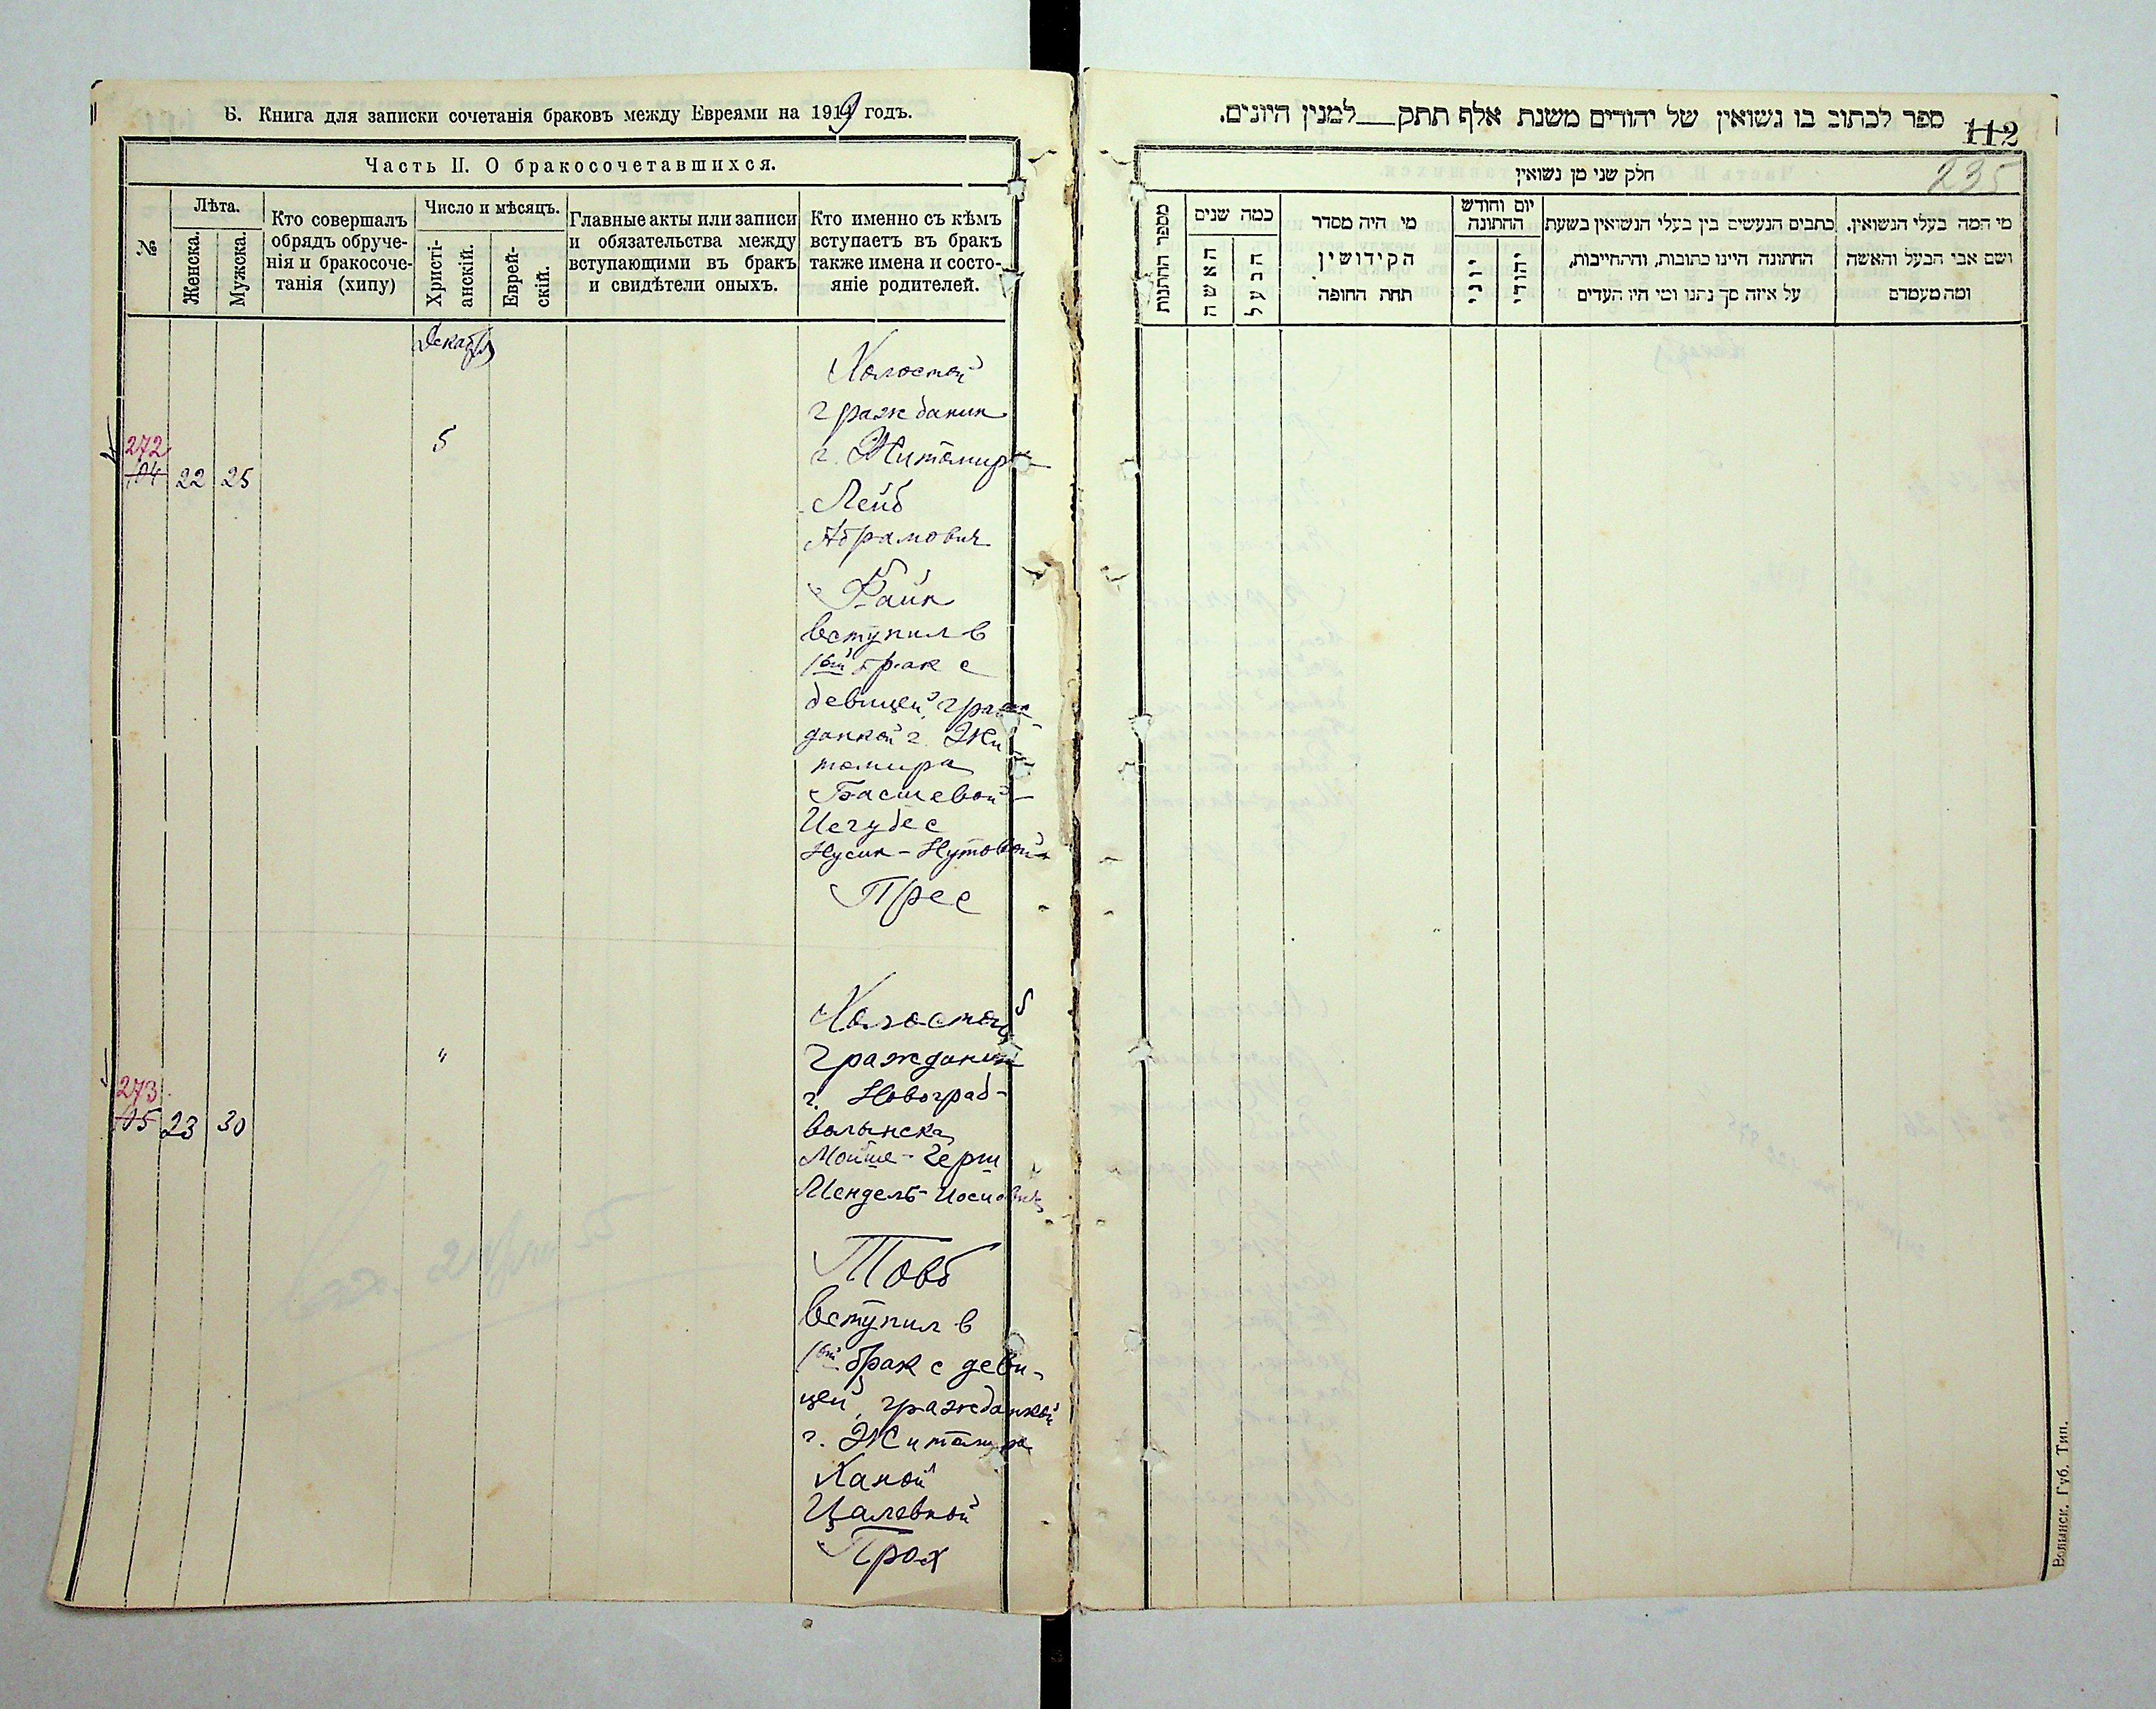 Б. Книга для записки сочетанія браковъ между Евреями на 1919 годъ.
Часть II. О бракосочетавшихся.
№
Лѣта.
Женска.
Мужска.
Кто совершалъ
обрядъ обруче-
нія и бракосоче-
танія (хипу)
Число и мѣсяцъ.
Христі-
анскій.
Еврей-
скій.
Главные акты или записи
и обязательства между
вступающими въ бракъ
и свидѣтели оныхъ.
Кто именно съ кѣмъ
вступаетъ въ бракъ
также имена и состо-
яніе родителей.
Декабрь
272
104
22
25
5
Холостой
гражданин
г. Житомира
Лейб
Абрамович
Файн
вступил в
1ый брак с
девицей, граж-
данкой г. Жи-
томира
Басшевой-
Нусин-Нутовой
Прес
273
105
23
30
"
Холостой
гражданин
г. Новоград-
волынска
Мойше-Герш
Мендель-Иосиович
Товб
вступил в
1ый брак с деви-
цей, гражданкой
г. Житомира
Ханой
Цалевной
Прох
ספר לכתוב בו נשואין של יהודים משנת אלף תתק___למנין היונים.
112
235
חלק שני מן נשואין
מספר החתנות
כמה שנים
האשה
הבעל
מי היה מסדר
הקידושין
תחת החופה
יום וחודש
החתונה
יוני
יהודי
כתבים הנעשים בין בעלי הנשואין בשעת
החתונה היינו כתובות, והתחייבות,
על איזה סך נתנו ומי היו העדים
מי המה בעלי הנשואין.
ושם אבי הבעל והאשה
ומה מעמדם
Волынск. Губ. Тип.